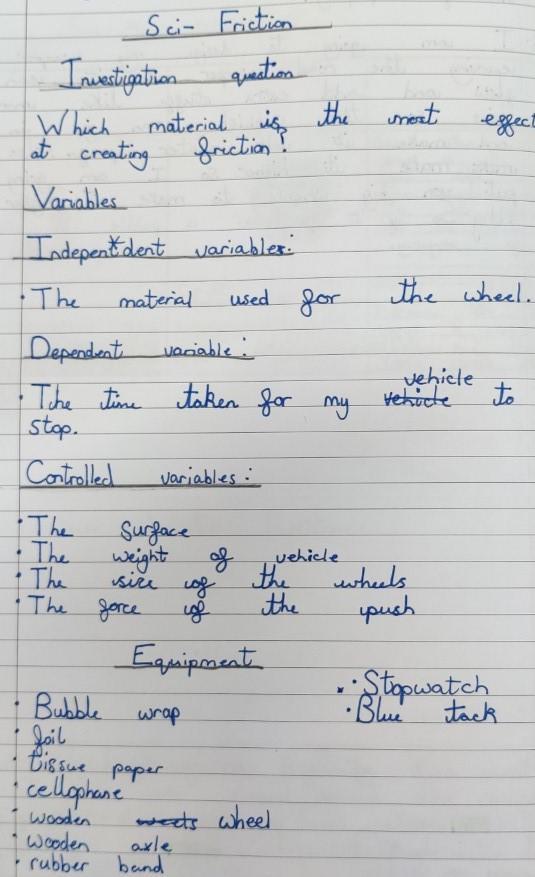 Sci- Friction
Investigation question
Which material is the most effect
at creating friction?
Variables
Indepentdent variables:
• The material used for the wheel.
Dependent variable:
• The time taken for my vehicle vehicle to
stop.
Controlled variables:
• The Surface
• The weight of vehicle
• The size of the wheels
• The force of the push
Equipment
• Bubble wrap
• foil
• tissue paper
• cellophane
• wooden wheel
• wooden axle
• rubber band
• Stopwatch
• Blue tack